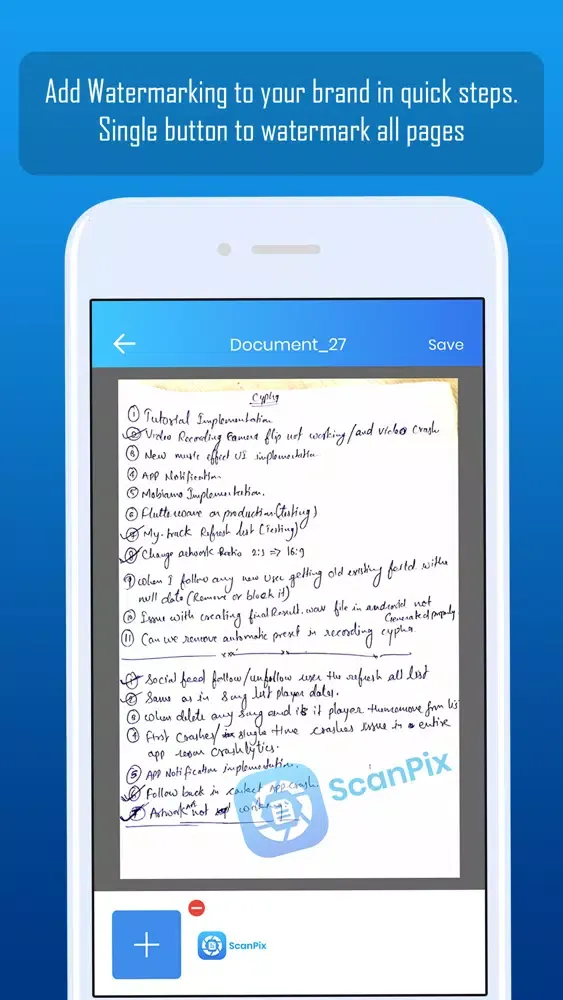 Add Watermarking to your brand in quick steps.
Single button to watermark all pages
Document_27
Save
Cypha
① Tutorial Implementation
② Video Recording Camera flip not working/and video crash
③ New music effect UI implementation
④ APP Notification
⑤ Mobiamo Implementation.
⑥ Flutterwave on production (testing)
⑦ My-track Refresh list (Testing)
⑧ Change artwork Ratio 2:3 => 16:9
⑨ When I follow any new user getting old existing with
null data (Remove or block it)
⑩ Issue with creating finalResult.wav file in android not
Generated properly
⑪ Can we remove automatic preset in recording cypha
① Social feed follow/unfollow user the refresh all list
② Same as in Song list player dates.
③ When delete any song and is it player from
④ First crashes/ single time crashes issue in entire
app crashlytics.
⑤ APP Notification implementation.
⑥ Follow back in APP crash.
⑦ Artwork not working
ScanPix
+
ScanPix